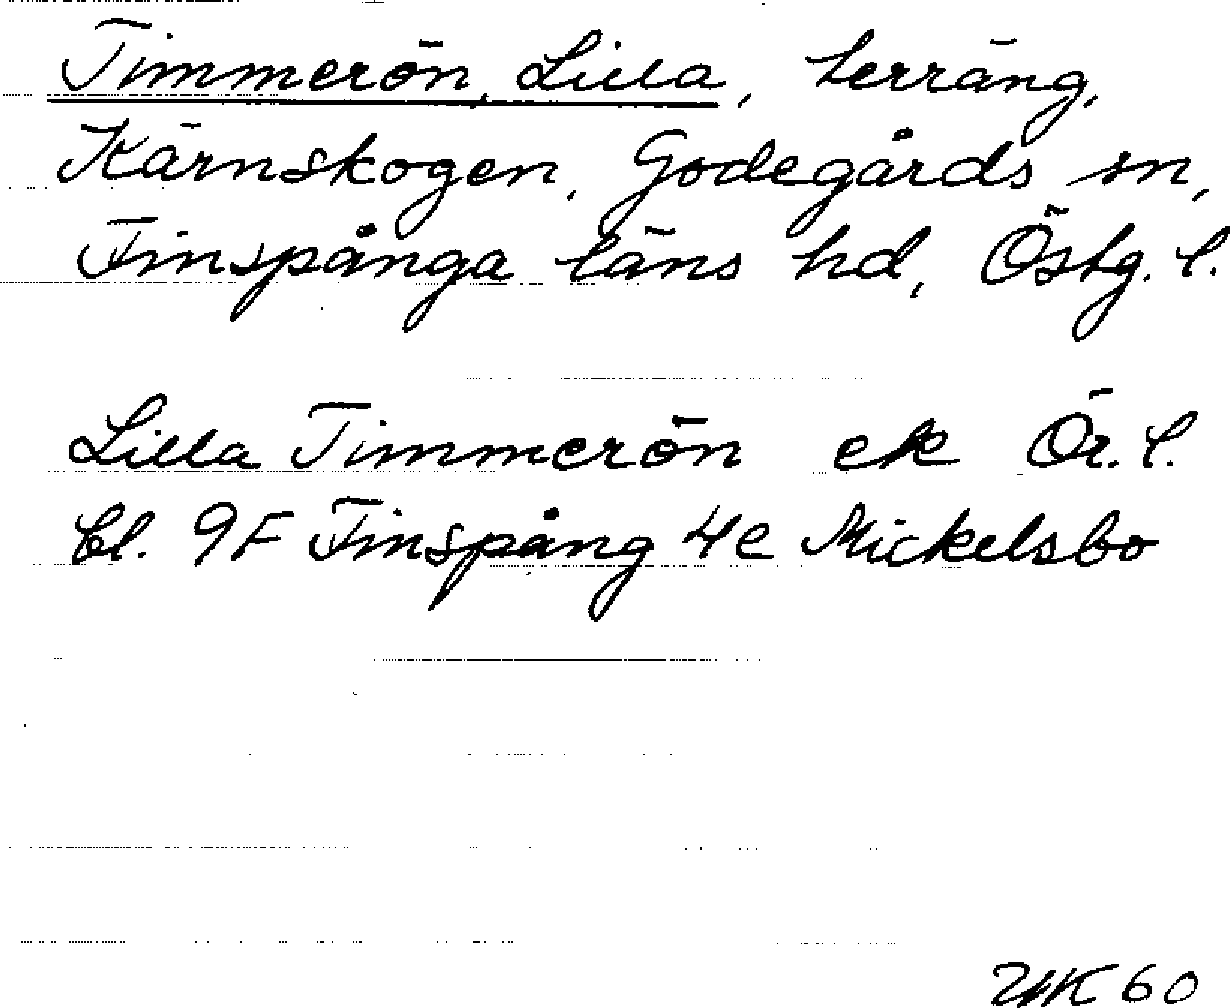 Timmerön, Lilla, terräng,
Kärnskogen, Godegårds sn,
Finspånga läns hd, Östg. l.
Lilla Timmerön ek Ör. l.
bl. 9F Finspång 4e Mickelsbo
60